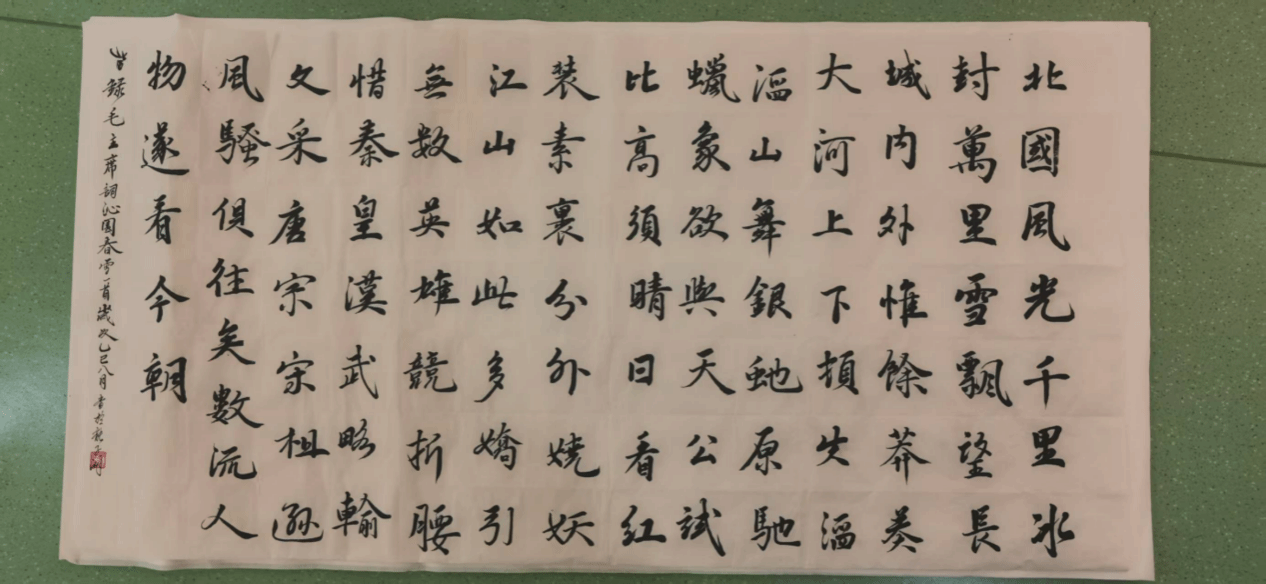 北國風光千里冰
封萬里雪飄望長
城内外惟餘莽莽
大河上下頓失滔
滔山舞銀虵原馳
蠟象欲與天公試
比高須晴日看紅
裝素裹分外嬈妖
江山如此多嬌引
無数英雄競折腰
惜秦皇漢武略輸
文采唐宗宋祖遜
風騷俱往矣數流人
物遂看今朝
錄毛主席詞沁園春雪一首歲次乙巳八月書於